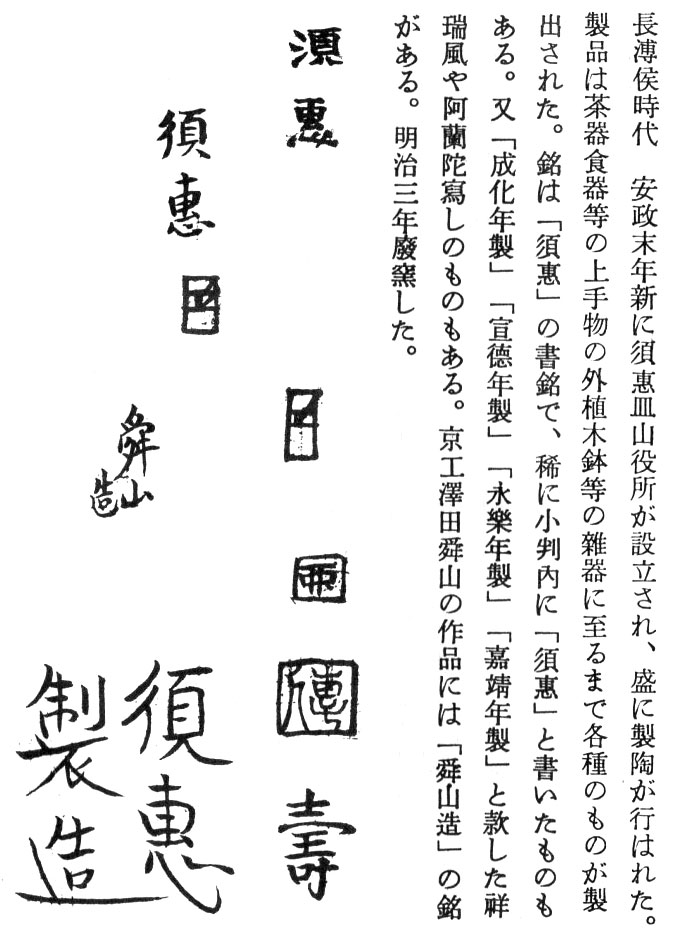 長溥侯時代　安政末年新に須惠皿山役所が設立され、盛に製陶が行はれた。
製品は茶器食器等の上手物の外植木鉢等の雜器に至るまで各種のものが製
出された。銘は「須惠」の書銘で、稀に小判內に「須惠」と書いたものも
ある。又「成化年製」「宣德年製」「永樂年製」「嘉靖年製」と款した祥
瑞風や阿蘭陀寫しのものもある。京工澤田舜山の作品には「舜山造」の銘
がある。明治三年廢窯した。
須惠
壽
須惠
舜山
造
須惠
製造